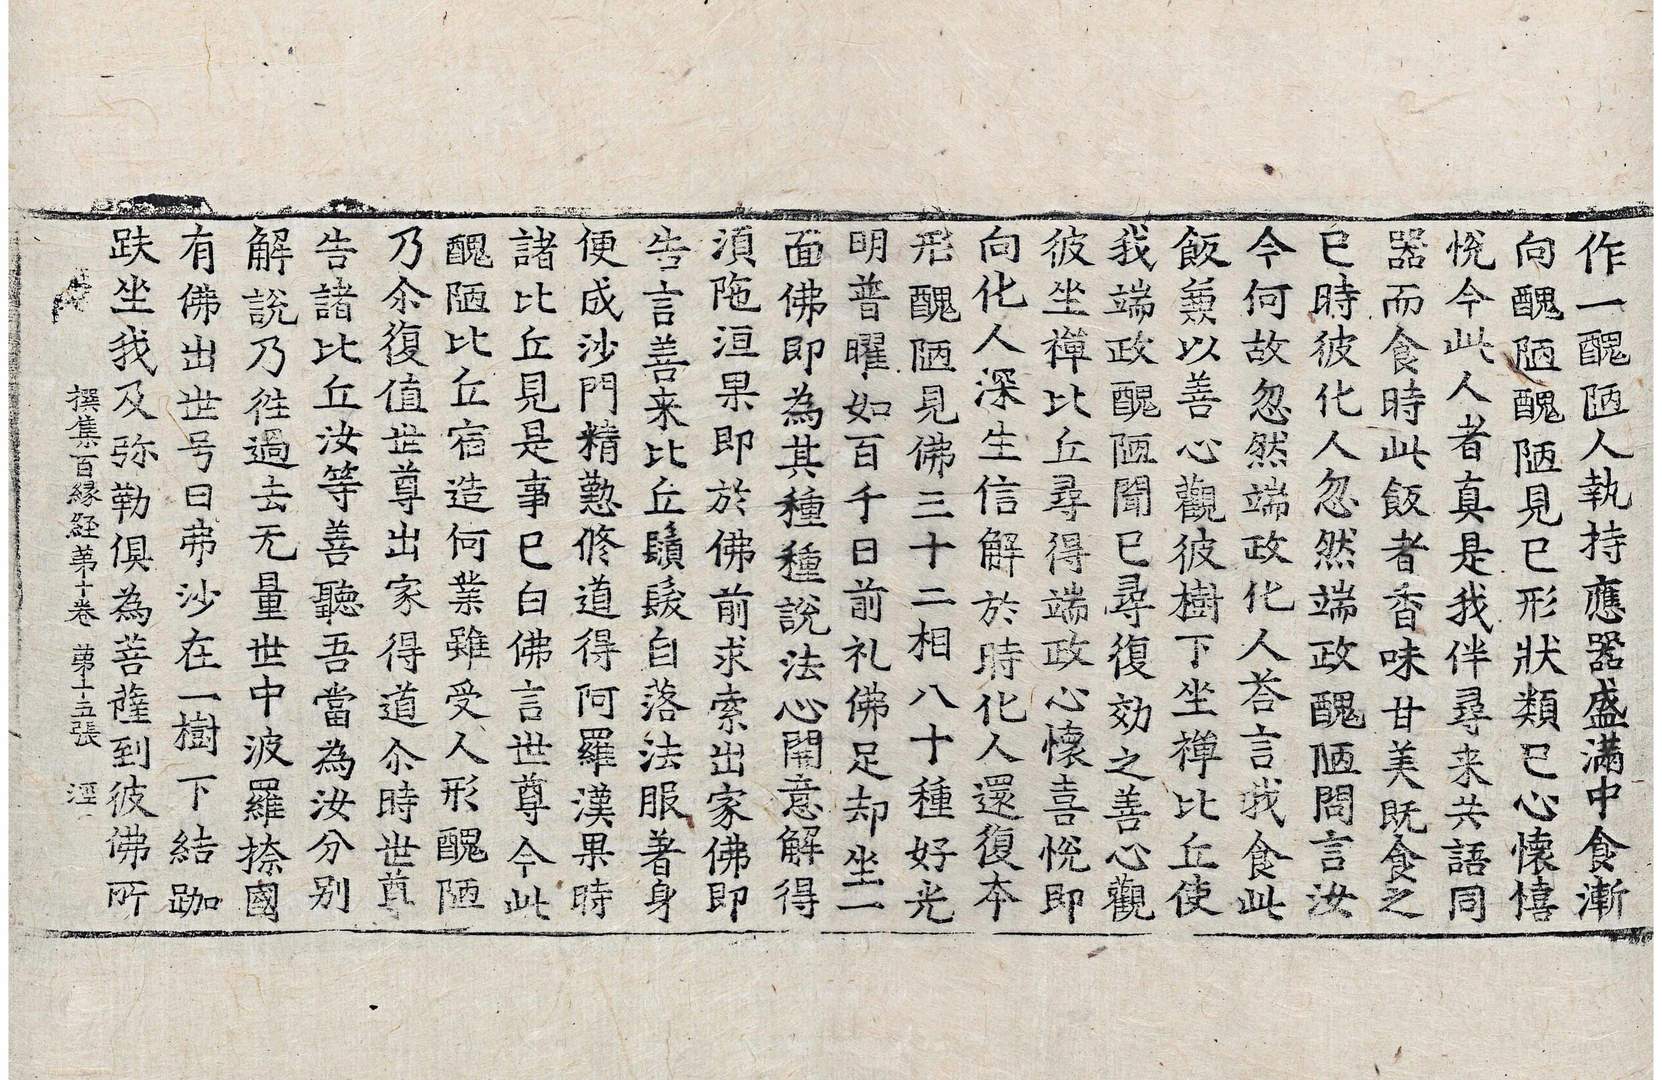 作一醜陋人執持應器盛滿中食漸
向醜陋醜陋見已形狀類已心懷憘
悅今此人者真是我伴尋来共語同
器而食時此飯者香味甘美既食之
已時彼化人忽然端政醜陋問言汝
今何故忽然端政化人荅言我食此
飯兼以善心觀彼樹下坐禪比丘使
我端政醜陋聞已尋復効之善心觀
彼坐禪比丘尋得端政心懷喜悅即
向化人深生信解於時化人還復本
形醜陋見佛三十二相八十種好光
明普曜如百千日前礼佛足却坐一
面佛即為其種種說法心開意解得
湏陁洹果即於佛前求索出家佛即
告言善来比丘鬚髮自落法服著身
便成沙門精懃修道得阿羅漢果時
諸比丘見是事已白佛言世尊今此
醜陋比丘宿造何業雖受人形醜陋
乃尒復值世尊出家得道尒時世尊
告諸比丘汝等善聽吾當為汝分別
解說乃徃過去无量世中波羅㮈國
有佛出世号曰弗沙在一樹下結跏
趺坐我及弥勒俱為菩薩到彼佛所
撰集百縁経第十卷 第十五張 涇